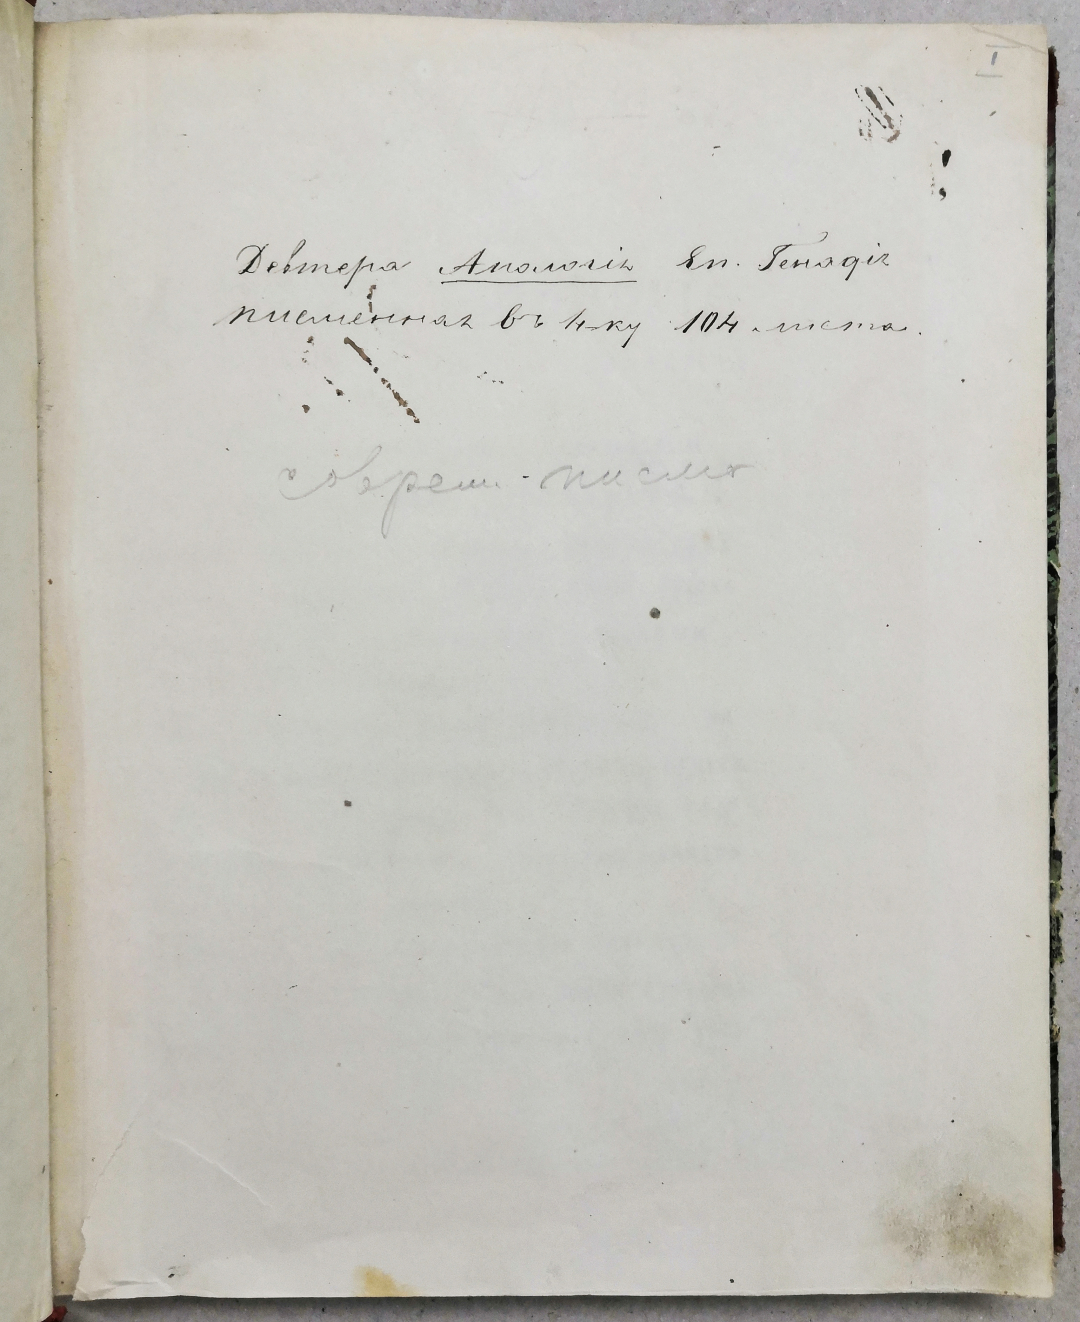 I
Девтера Апологія Еп. Генадія
писменная въ 4-ку 104 листа.
соврем. писмо